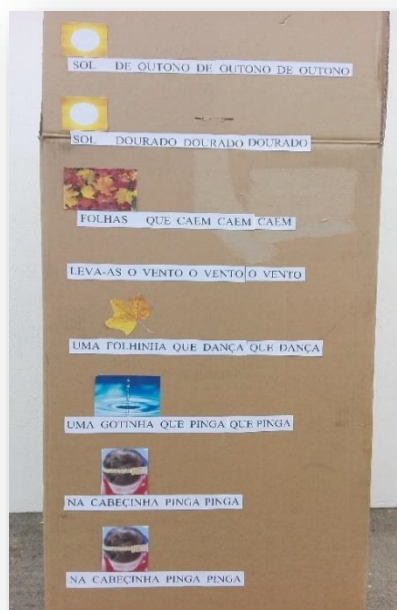 SOL DE OUTONO DE OUTONO DE OUTONO
SOL DOURADO DOURADO DOURADO
FOLHAS QUE CAEM CAEM CAEM
LEVA-AS O VENTO O VENTO O VENTO
UMA FOLHINHA QUE DANÇA QUE DANÇA
UMA GOTINHA QUE PINGA QUE PINGA
NA CABEÇINHA PINGA PINGA
NA CABEÇINHA PINGA PINGA